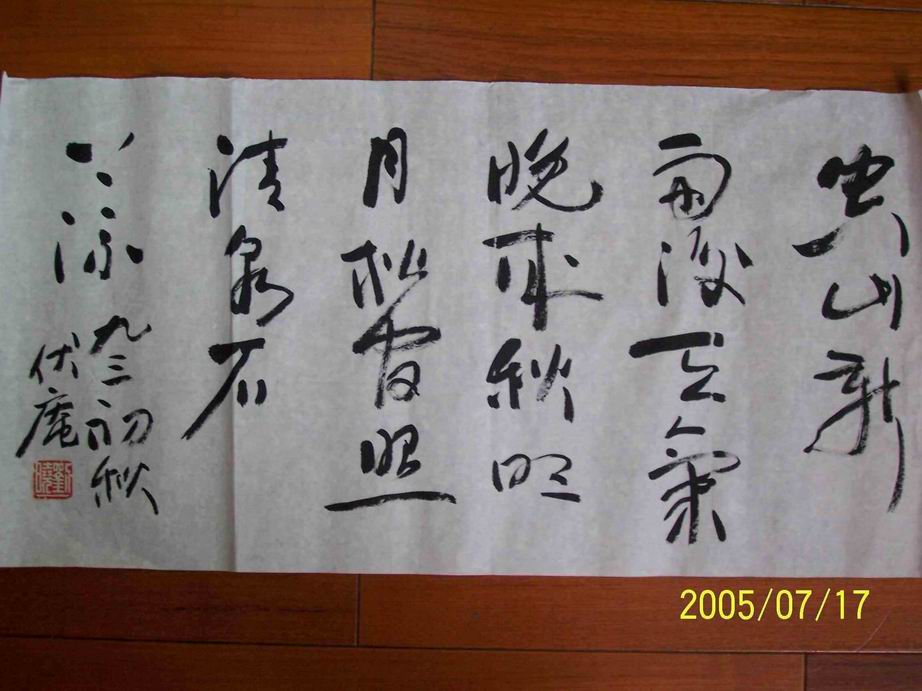 空山新
雨後天氣
晚來秋明
月松間照
清泉石
上流
九三初秋
伏庵
2005/07/17